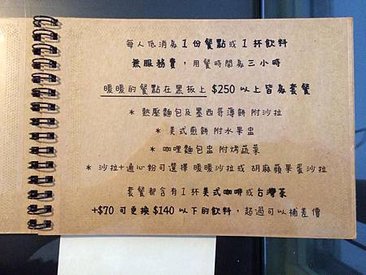 每人低消為1份餐點或1杯飲料
無服務費，用餐時間為三小時
暖暖的餐點在黑板上 $250以上皆為套餐
* 熱壓麵包及墨西哥薄餅 附沙拉
* 美式煎餅 附水果串
* 咖哩麵包串 附烤蔬菜
* 沙拉+通心粉可選擇 暖暖沙拉或 胡麻蘋果蛋沙拉
套餐都含有1杯美式咖啡或台灣茶
+$70 可更換 $140 以下的飲料，超過可以補差價